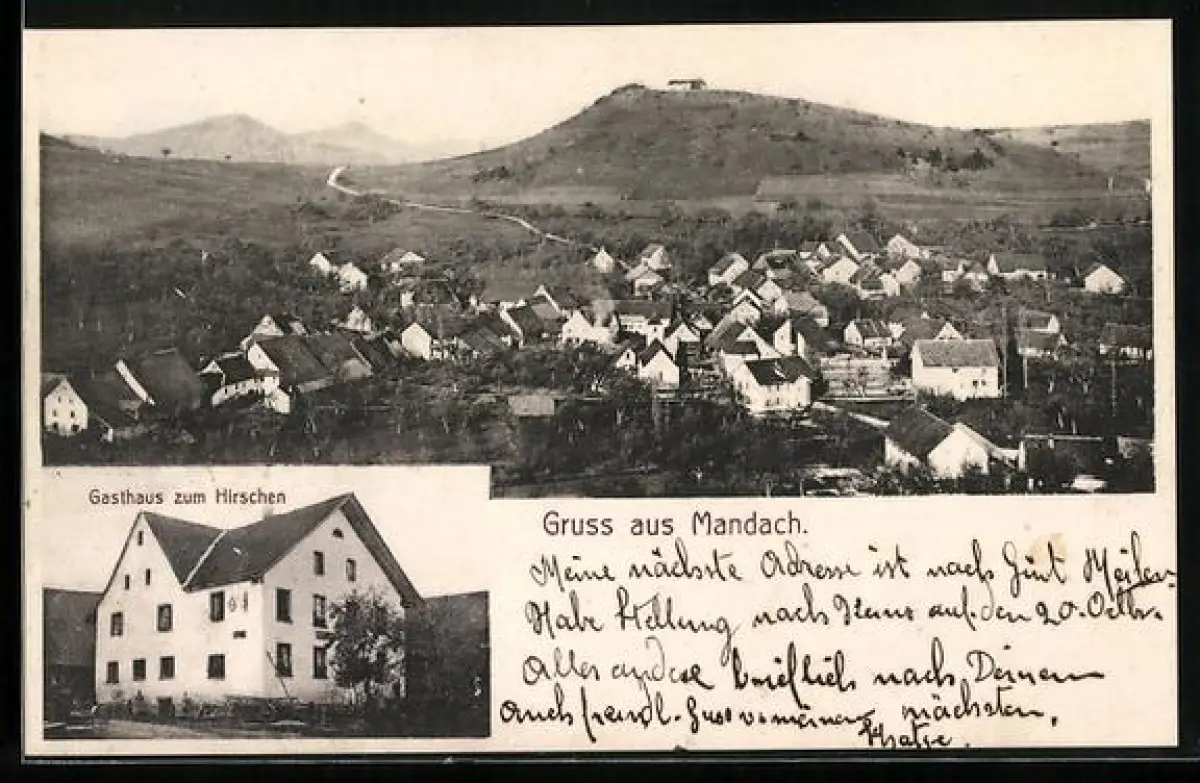 Gasthaus zum Hirschen
Gruss aus Mandach.
Meine nächste Adresse ist nach Gut Meilen
Habe Stellung nach auf den 20. Octbr.
Alles andere brieflich nach Deinem
Auch frendl. Gruss v. meinem nächsten,